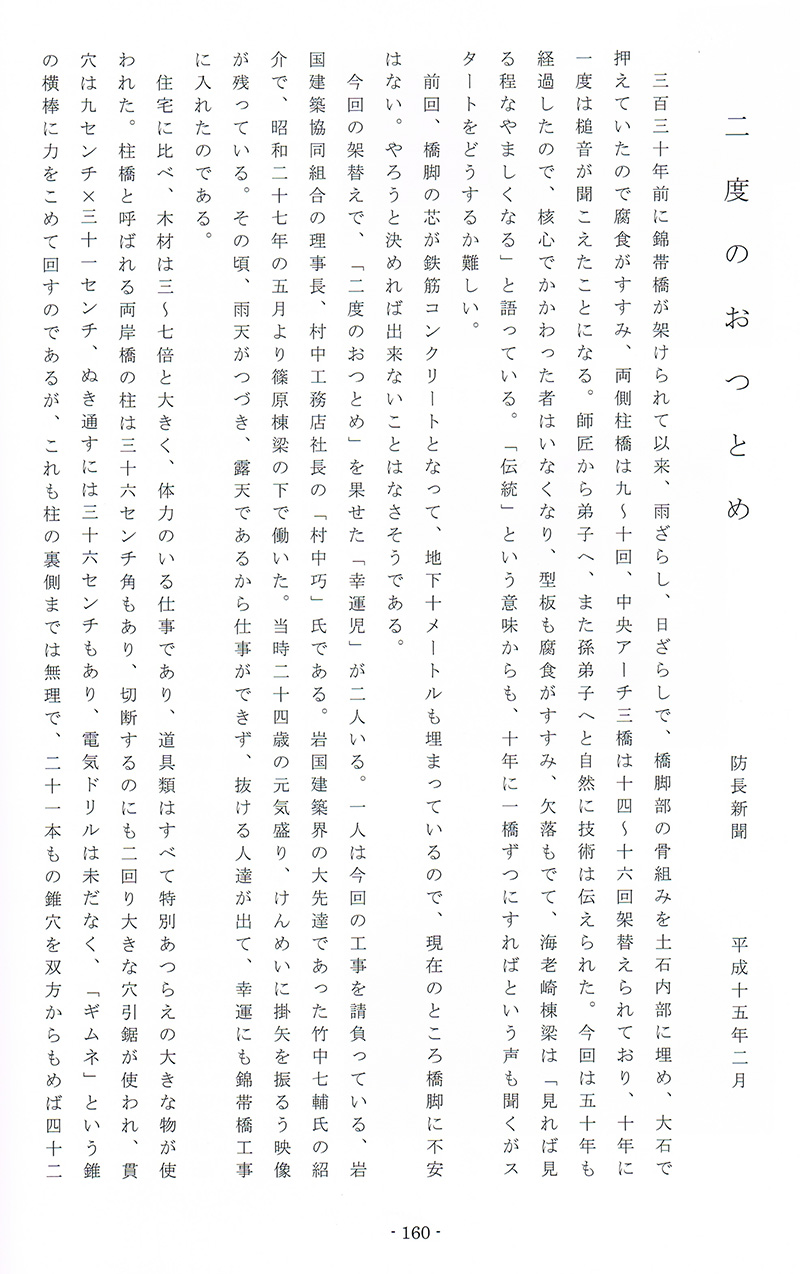 二度のおつとめ
防長新聞　平成十五年二月
三百三十年前に錦帯橋が架けられて以来、雨ざらし、日ざらしで、橋脚部の骨組みを土石内部に埋め、大石で
押えていたので腐食がすすみ、両側柱橋は九〜十回、中央アーチ三橋は十四〜十六回架替えられており、十年に
一度は槌音が聞こえたことになる。師匠から弟子へ、また孫弟子へと自然に技術は伝えられた。今回は五十年も
経過したので、核心でかかわった者はいなくなり、型板も腐食がすすみ、欠落もでて、海老崎棟梁は「見れば見
る程なやましくなる」と語っている。「伝統」という意味からも、十年に一橋ずつにすればという声も聞くがス
タートをどうするか難しい。
前回、橋脚の芯が鉄筋コンクリートとなって、地下十メートルも埋まっているので、現在のところ橋脚に不安
はない。やろうと決めれば出来ないことはなさそうである。
今回の架替えで、「二度のおつとめ」を果せた「幸運児」が二人いる。一人は今回の工事を請負っている、岩
国建築協同組合の理事長、村中工務店社長の「村中巧」氏である。岩国建築界の大先達であった竹中七輔氏の紹
介で、昭和二十七年の五月より篠原棟梁の下で働いた。当時二十四歳の元気盛り、けんめいに掛矢を振るう映像
が残っている。その頃、雨天がつづき、露天であるから仕事ができず、抜ける人達が出て、幸運にも錦帯橋工事
に入れたのである。
住宅に比べ、木材は三〜七倍と大きく、体力のいる仕事であり、道具類はすべて特別あつらえの大きな物が使
われた。柱橋と呼ばれる両岸橋の柱は三十六センチ角もあり、切断するのにも二回り大きな穴引鋸が使われ、貫
穴は九センチ×三十一センチ、ぬき通すには三十六センチもあり、電気ドリルは未だなく、「ギムネ」という錐
の横棒に力をこめて回すのであるが、これも柱の裏側までは無理で、二十一本もの錐穴を双方からもめば四十二
- 160 -